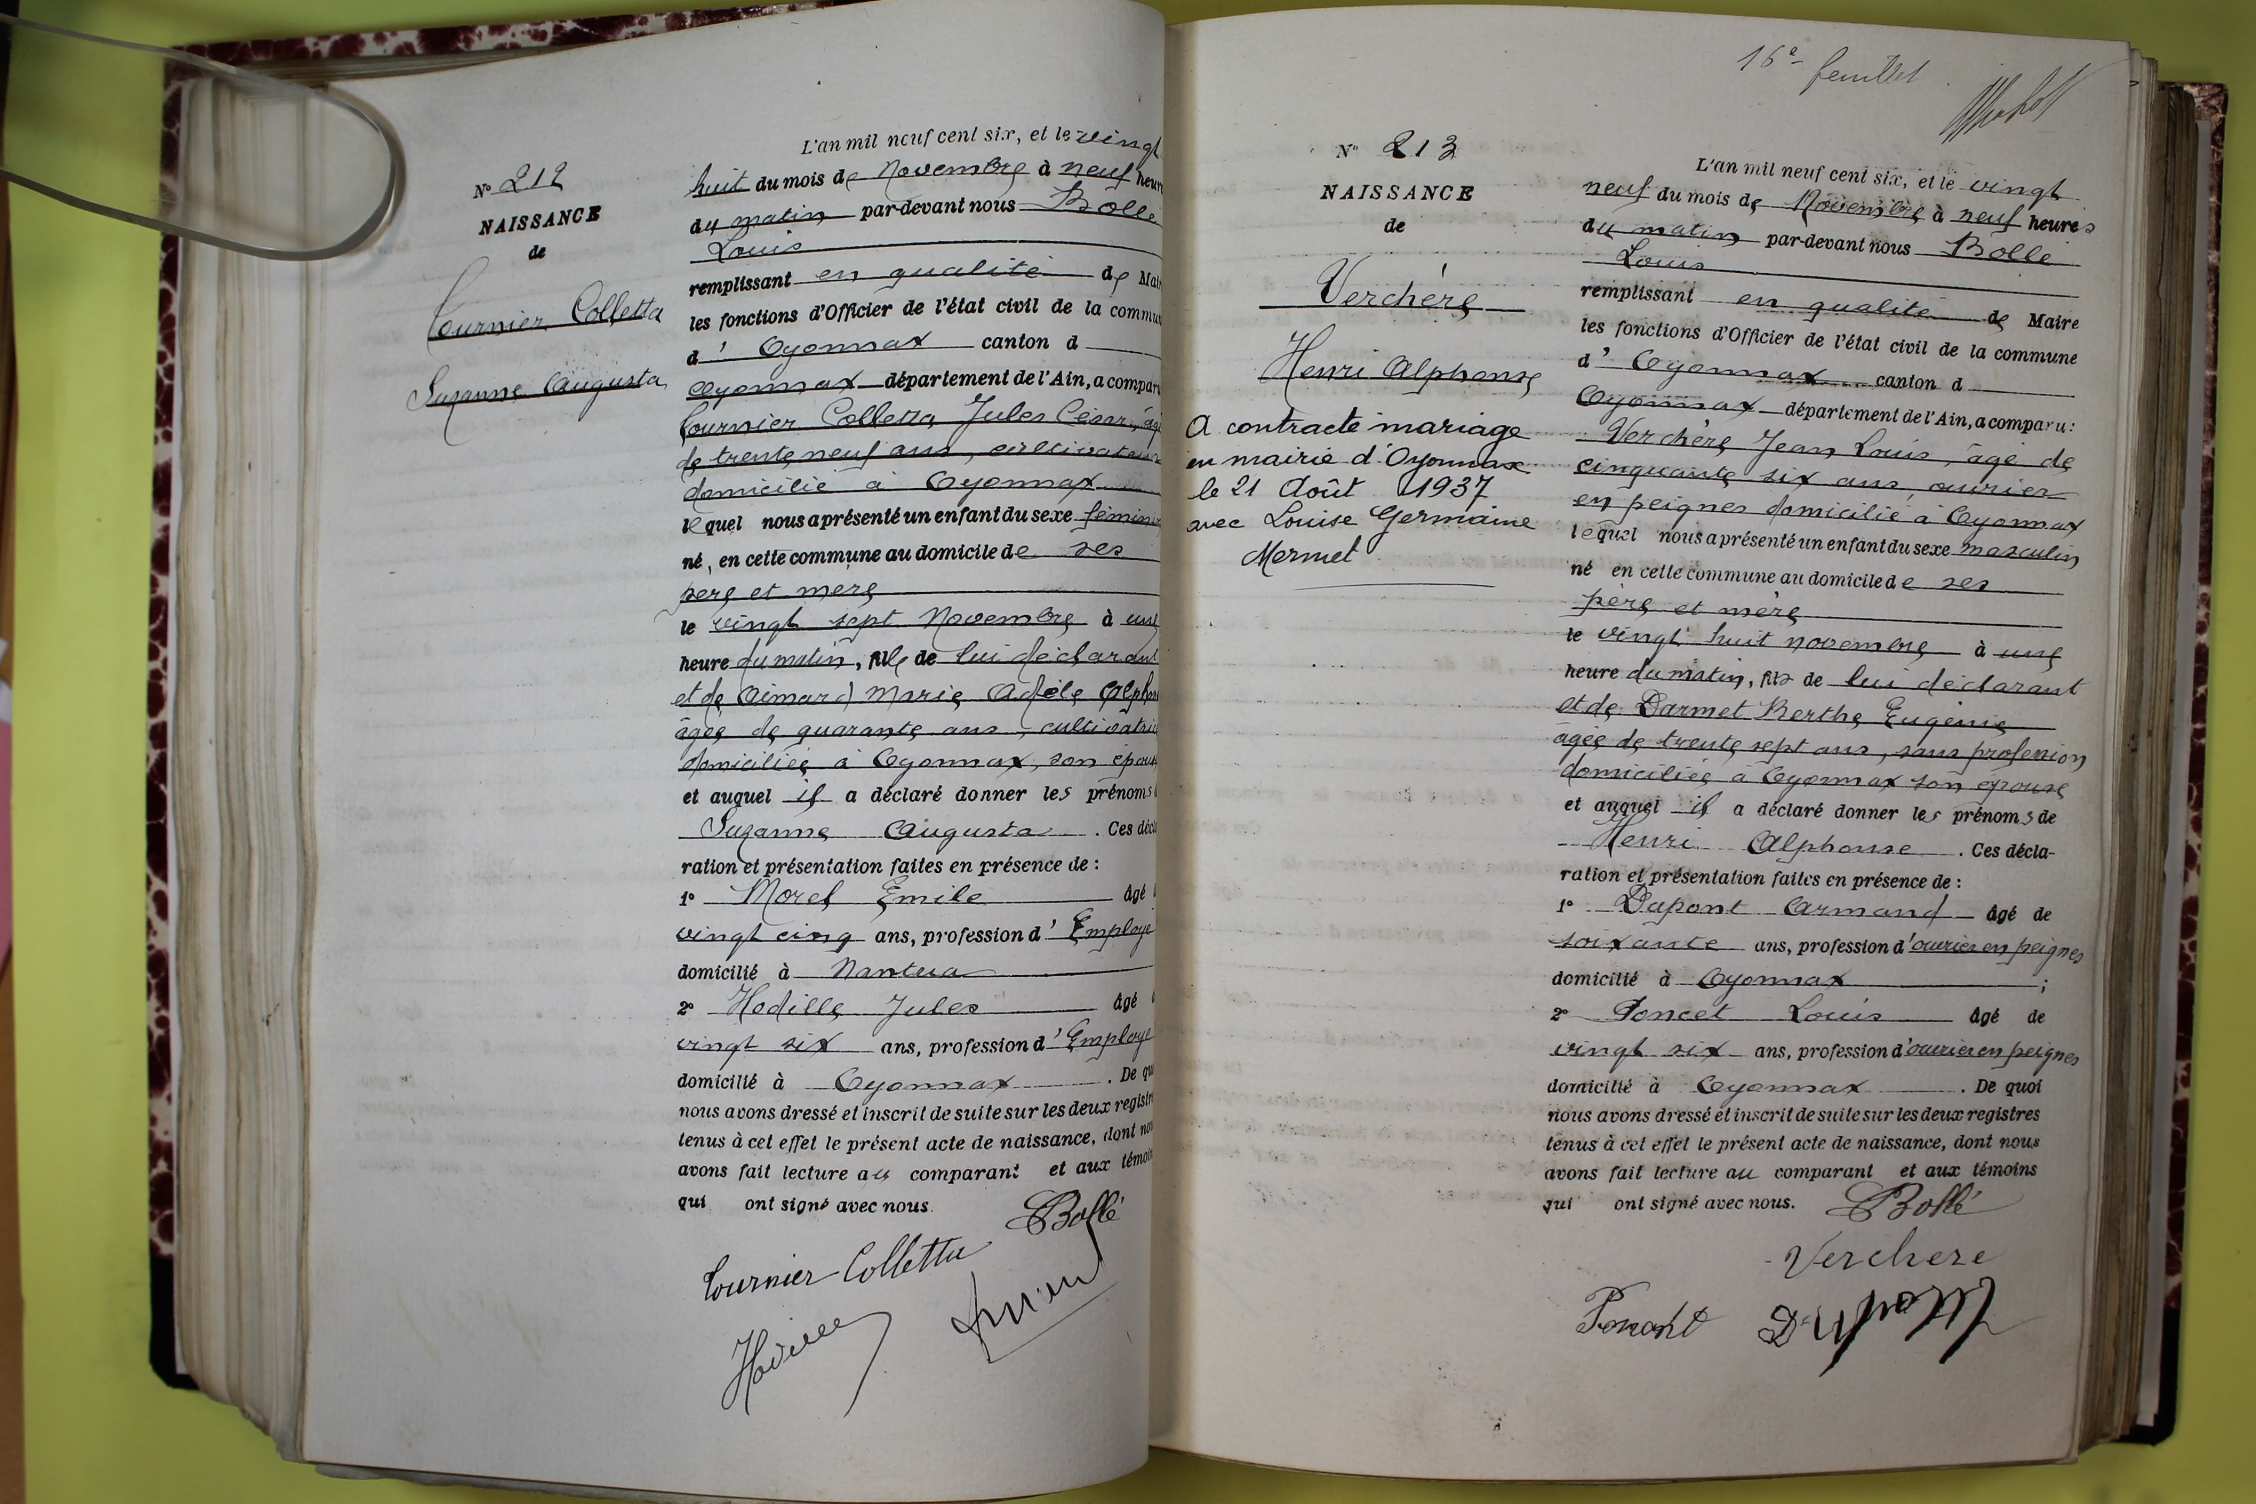 L'an mil neuf cent six, et le vingt
N° 212
huit du mois de Novembre à neuf heure
NAISSANCE
du matin par-devant nous Bollé
de
Louis
remplissant en qualité de Mai
Tournier Colletta
les fonctions d'Officier de l'état civil de la commun
d' Oyonnax canton d
Suzanne Augusta
Oyonnax département de l'Ain, a comparu
Tournier Colletta Jules César, âgé
de trente neuf ans, cultivateur
domicilié à Oyonnax
lequel nous a présenté un enfant du sexe féminin
né, en cette commune au domicile de ses
père et mère
le vingt sept Novembre à une
heure du matin, fille de lui déclarant
et de Aimard Marie Adèle Alphon
âgée de quarante ans, cultivatric
domiciliée à Oyonnax, son épouse
et auquel il a déclaré donner les prénoms
Suzanne Augusta. Ces décla
ration et présentation faites en présence de :
1° Morel Emile âgé
vingt cinq ans, profession d'Employé
domicilié à Nantua
2° Hodille Jules âgé
vingt six ans, profession d'Employé
domicilié à Oyonnax. De quo
nous avons dressé et inscrit de suite sur les deux registre
tenus à cet effet le présent acte de naissance, dont nou
avons fait lecture au comparant et aux témoin
qui ont signé avec nous.
Bollé
Tournier Colletta
16e feuillet
N° 213
L'an mil neuf cent six, et le vingt
NAISSANCE
neuf du mois de Novembre à neuf heures
de
du matin par-devant nous Bollé
Louis
Verchère
remplissant en qualité de Maire
les fonctions d'Officier de l'état civil de la commune
Henri Alphonse
d' Oyonnax canton d
Oyonnax département de l'Ain, a comparu :
A contracté mariage
en mairie d'Oyonnax
le 21 Août 1937
avec Louise Germaine
Mermet
Verchère Jean Louis, âgé de
cinquante six ans, ouvrier
en peignes domicilié à Oyonnax
lequel nous a présenté un enfant du sexe masculin
né en cette commune au domicile de ses
père et mère
le vingt huit novembre à une
heure du matin, fils de lui déclarant
et de Darmet Berthe Eugénie
âgée de trente sept ans, sans profession
domiciliée à Oyonnax son épouse
et auquel il a déclaré donner les prénoms de
Henri Alphonse. Ces décla-
ration et présentation faites en présence de :
1° Dupont Armand âgé de
soixante ans, profession d'ouvrier en peignes
domicilié à Oyonnax ;
2° Poncet Louis âgé de
vingt six ans, profession d'ouvrier en peignes
domicilié à Oyonnax. De quoi
nous avons dressé et inscrit de suite sur les deux registres
tenus à cet effet le présent acte de naissance, dont nous
avons fait lecture au comparant et aux témoins
qui ont signé avec nous. Bollé
Verchere